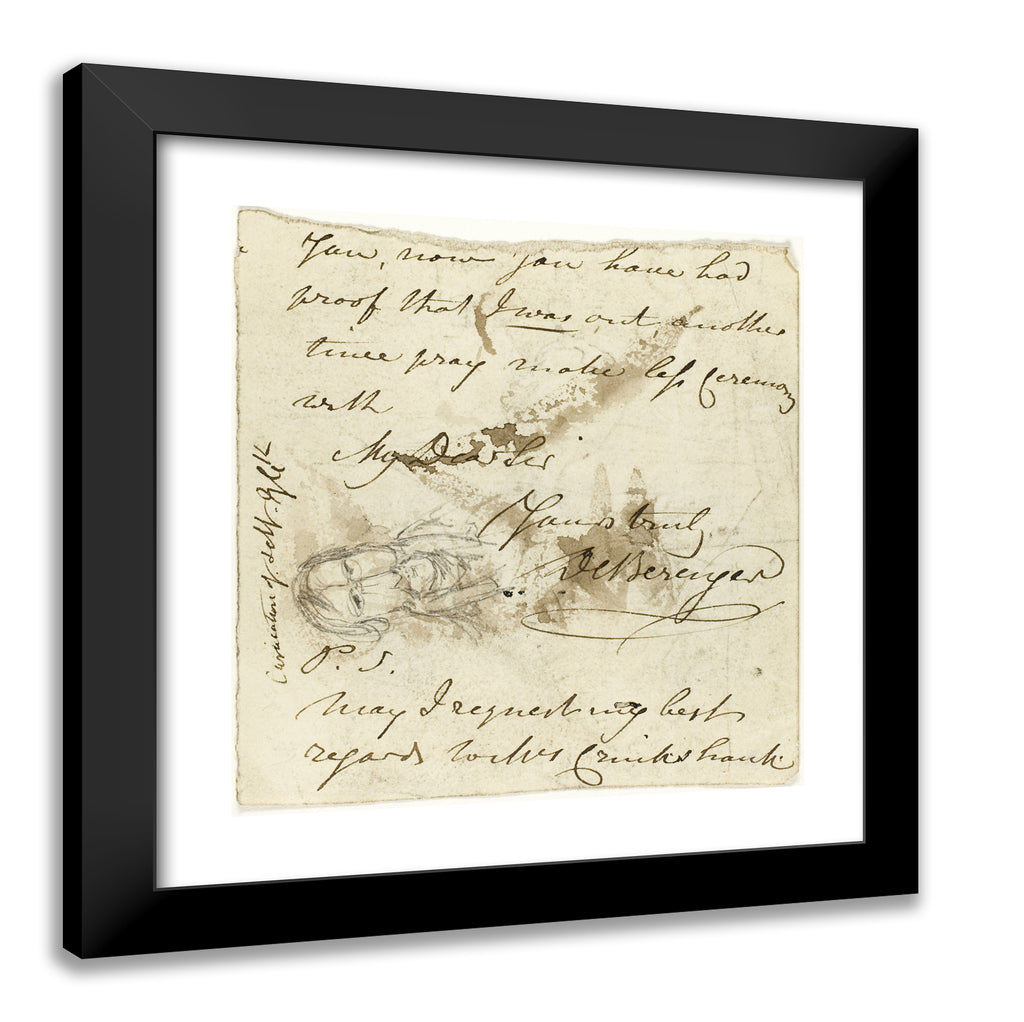 You, now you have had
proof that I was out, another
time pray make less Ceremony
with
My Dear Sir
Yours truly
DeBerenger
P. S.
May I request my best
regards to Mrs Cruikshank
Caricature of self. G Ck